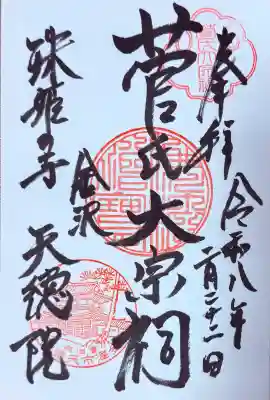 奉拝
令和八年
二月二十二日
菅氏大宗祠
金沢
天徳院
珠姫の寺